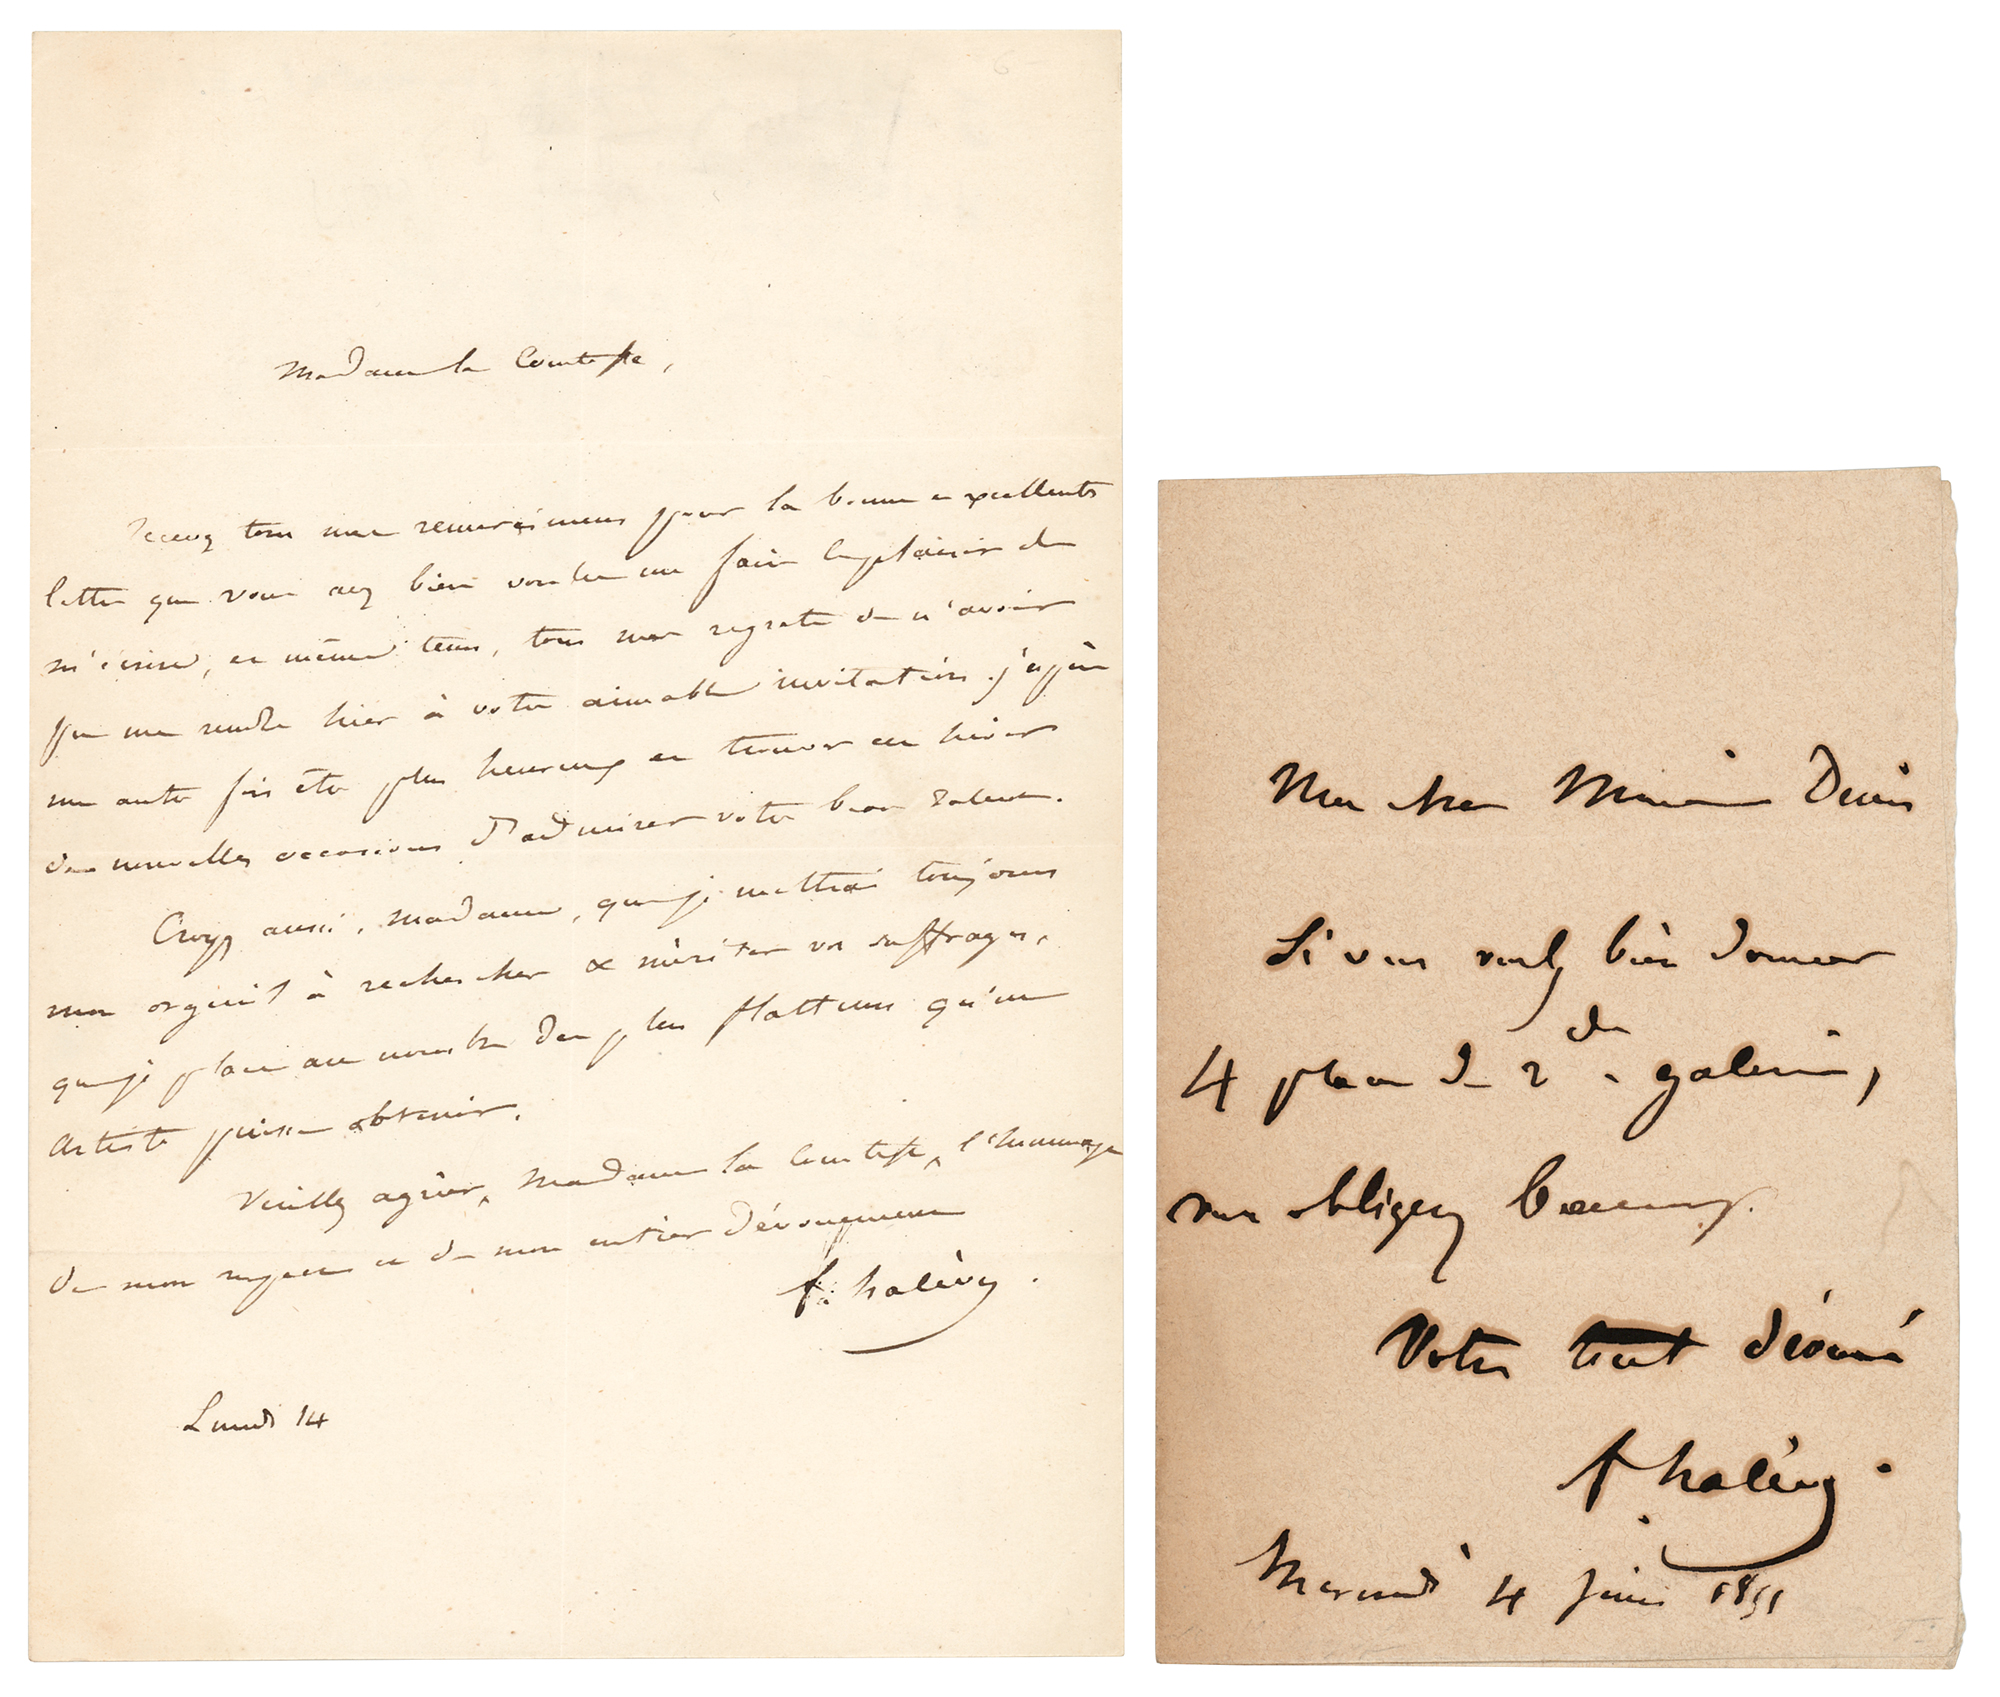 Madame la Comtesse,
Recevez tous mes remerciemens pour la bonne et excellente
lettre que vous avez bien voulu me faire le plaisir de
m'écrire, et en même tems, tous mes regrets de n'avoir
pu me rendre hier à votre aimable invitation. J'espère
une autre fois être plus heureux et trouver cet hiver
de nouvelles occasions d'admirer votre beau talent.
Croyez aussi, Madame, que je mettrai toujours
mon orgueil à rechercher & mériter vos suffrages,
que je place au nombre des plus flatteurs qu'un
artiste puisse obtenir.
Veuillez agréer, Madame la Comtesse, l'hommage
de mon respect et de mon entier dévouement
f. halévy.
Lundi 14
Mon cher Monsieur Denis
Si vous voulez bien donner
4 places de 2de galerie,
vous obligerez beaucoup.
Votre tout dévoué
f halévy.
Mercredi 4 Juin 1851